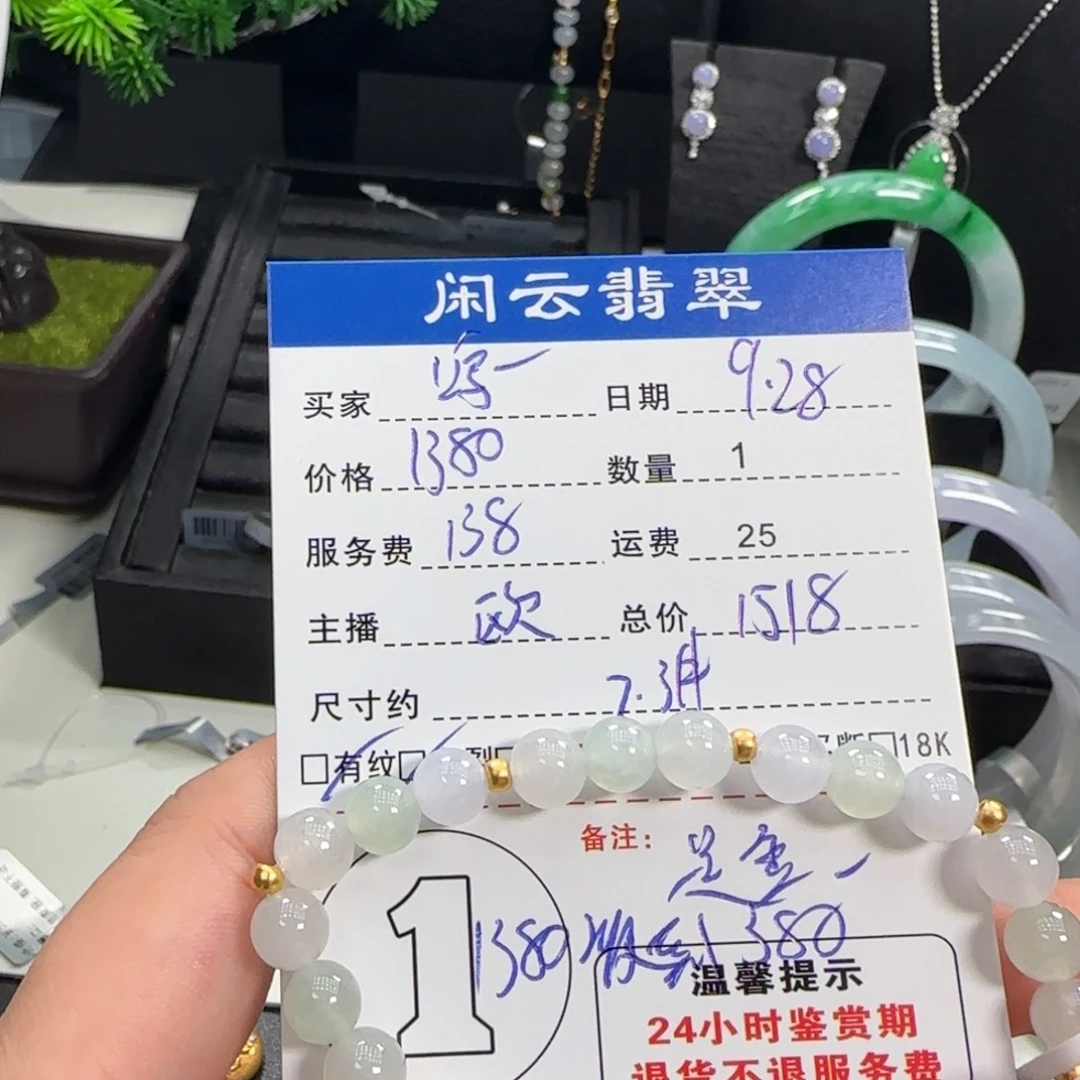 闲云翡翠
买家 日期 9.28
价格 1380 数量 1
服务费 138 运费 25
主播 欧 总价 1518
尺寸约 7.3
□有纹□ 列□ 断□18K
备注:
1
1380 380
温馨提示
24小时鉴赏期
退货不退服务费